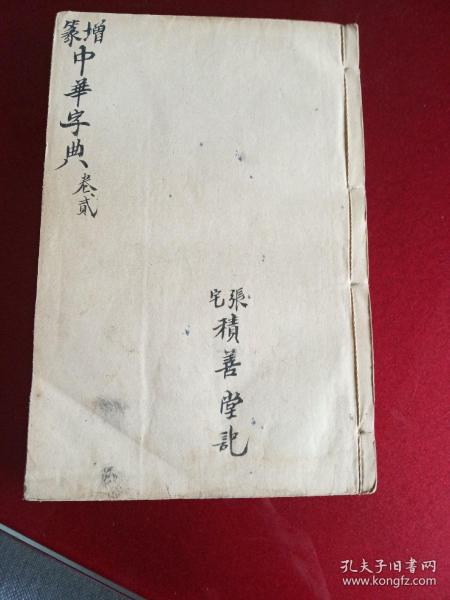 增篆中華字典卷貳
張宅積善堂記
孔夫子旧书网
www.kongfz.com